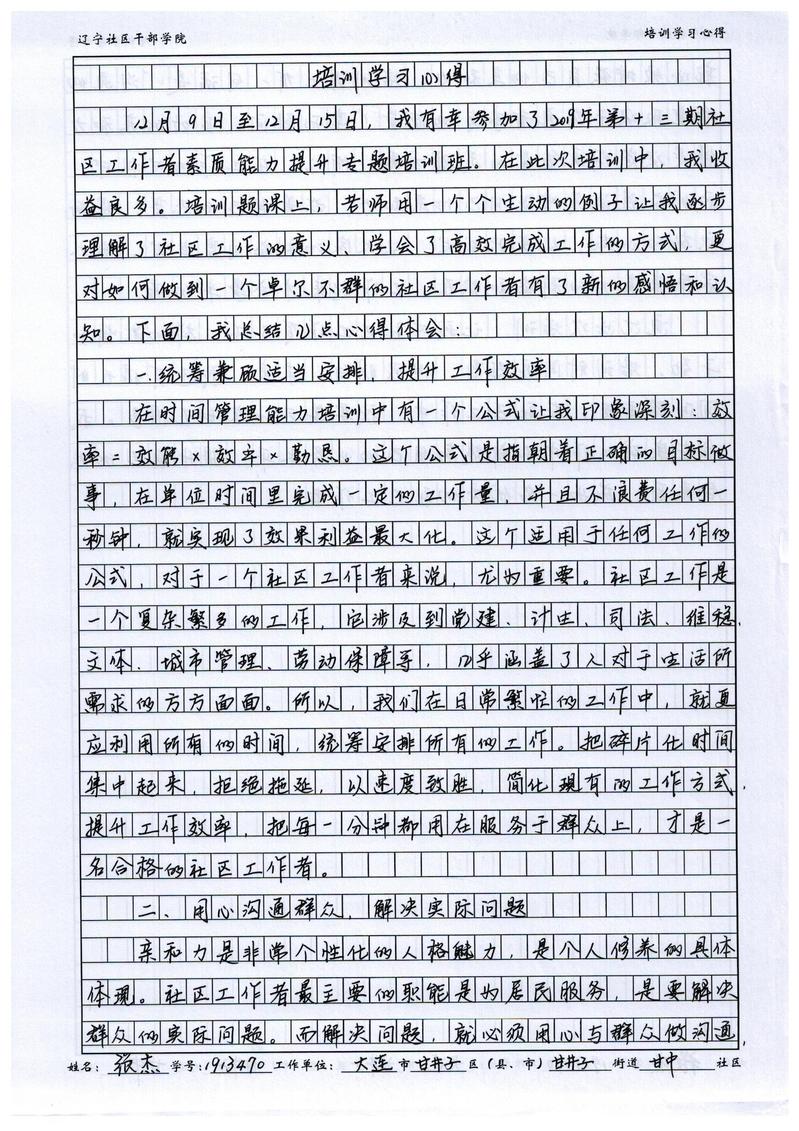 辽宁社区干部学院 培训学习心得
培训学习心得
12月9日至12月15日，我有幸参加了2019年第十三期社
区工作者素质能力提升专题培训班。在此次培训中，我收
益良多。培训题课上，老师用一个个生动的例子让我逐步
理解了社区工作的意义、学会了高效完成工作的方式，更
对如何做到一个卓尔不群的社区工作者有了新的感悟和认
知。下面，我总结几点心得体会：
一.统筹兼顾适当安排，提升工作效率
在时间管理能力培训中有一个公式让我印象深刻：效
率=效能×效率×勤恳。这个公式是指朝着正确的目标做
事，在单位时间里完成一定的工作量，并且不浪费任何一
秒钟，就实现了效果利益最大化。这个适用于任何工作的
公式，对于一个社区工作者来说，尤为重要。社区工作是
一个复杂繁多的工作，它涉及到党建、计生、司法、维稳、
文体、城市管理、劳动保障等，几乎涵盖了人对于生活所
需求的方方面面。所以，我们在日常繁忙的工作中，就更
应利用所有的时间，统筹安排所有的工作。把碎片化时间
集中起来，拒绝拖延，以速度致胜，简化现有的工作方式，
提升工作效率，把每一分钟都用在服务于群众上，才是一
名合格的社区工作者。
二、用心沟通群众，解决实际问题
亲和力是非常个性化的人格魅力，是个人修养的具体
体现。社区工作者最主要的职能是为居民服务，是要解决
群众的实际问题。而解决问题，就必须用心与群众做沟通，
姓名：张杰 学号：1913470 工作单位：大连市甘井子区（县、市）甘井子街道甘中社区